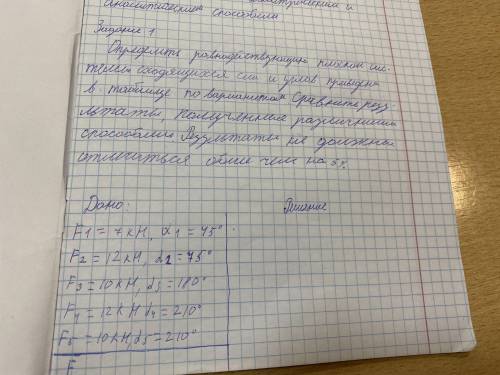 аналитическим способами
Задание 1
Определить равнодействующую плоской сис-
темы сходящихся сил и углов приведены
в таблице по вариантам Сравните резу-
льтаты, полученные различными
способами. Результаты не должны
отличаться более чем на 5%.
Дано:
Решение
F1 = 7 кН, α1 = 45°
F2 = 12кН, α2 = 75°
F3 = 10кН, α3 = 180°
F4 = 12кН α4 = 210°
F5 = 10кН, α5 = 210°
F